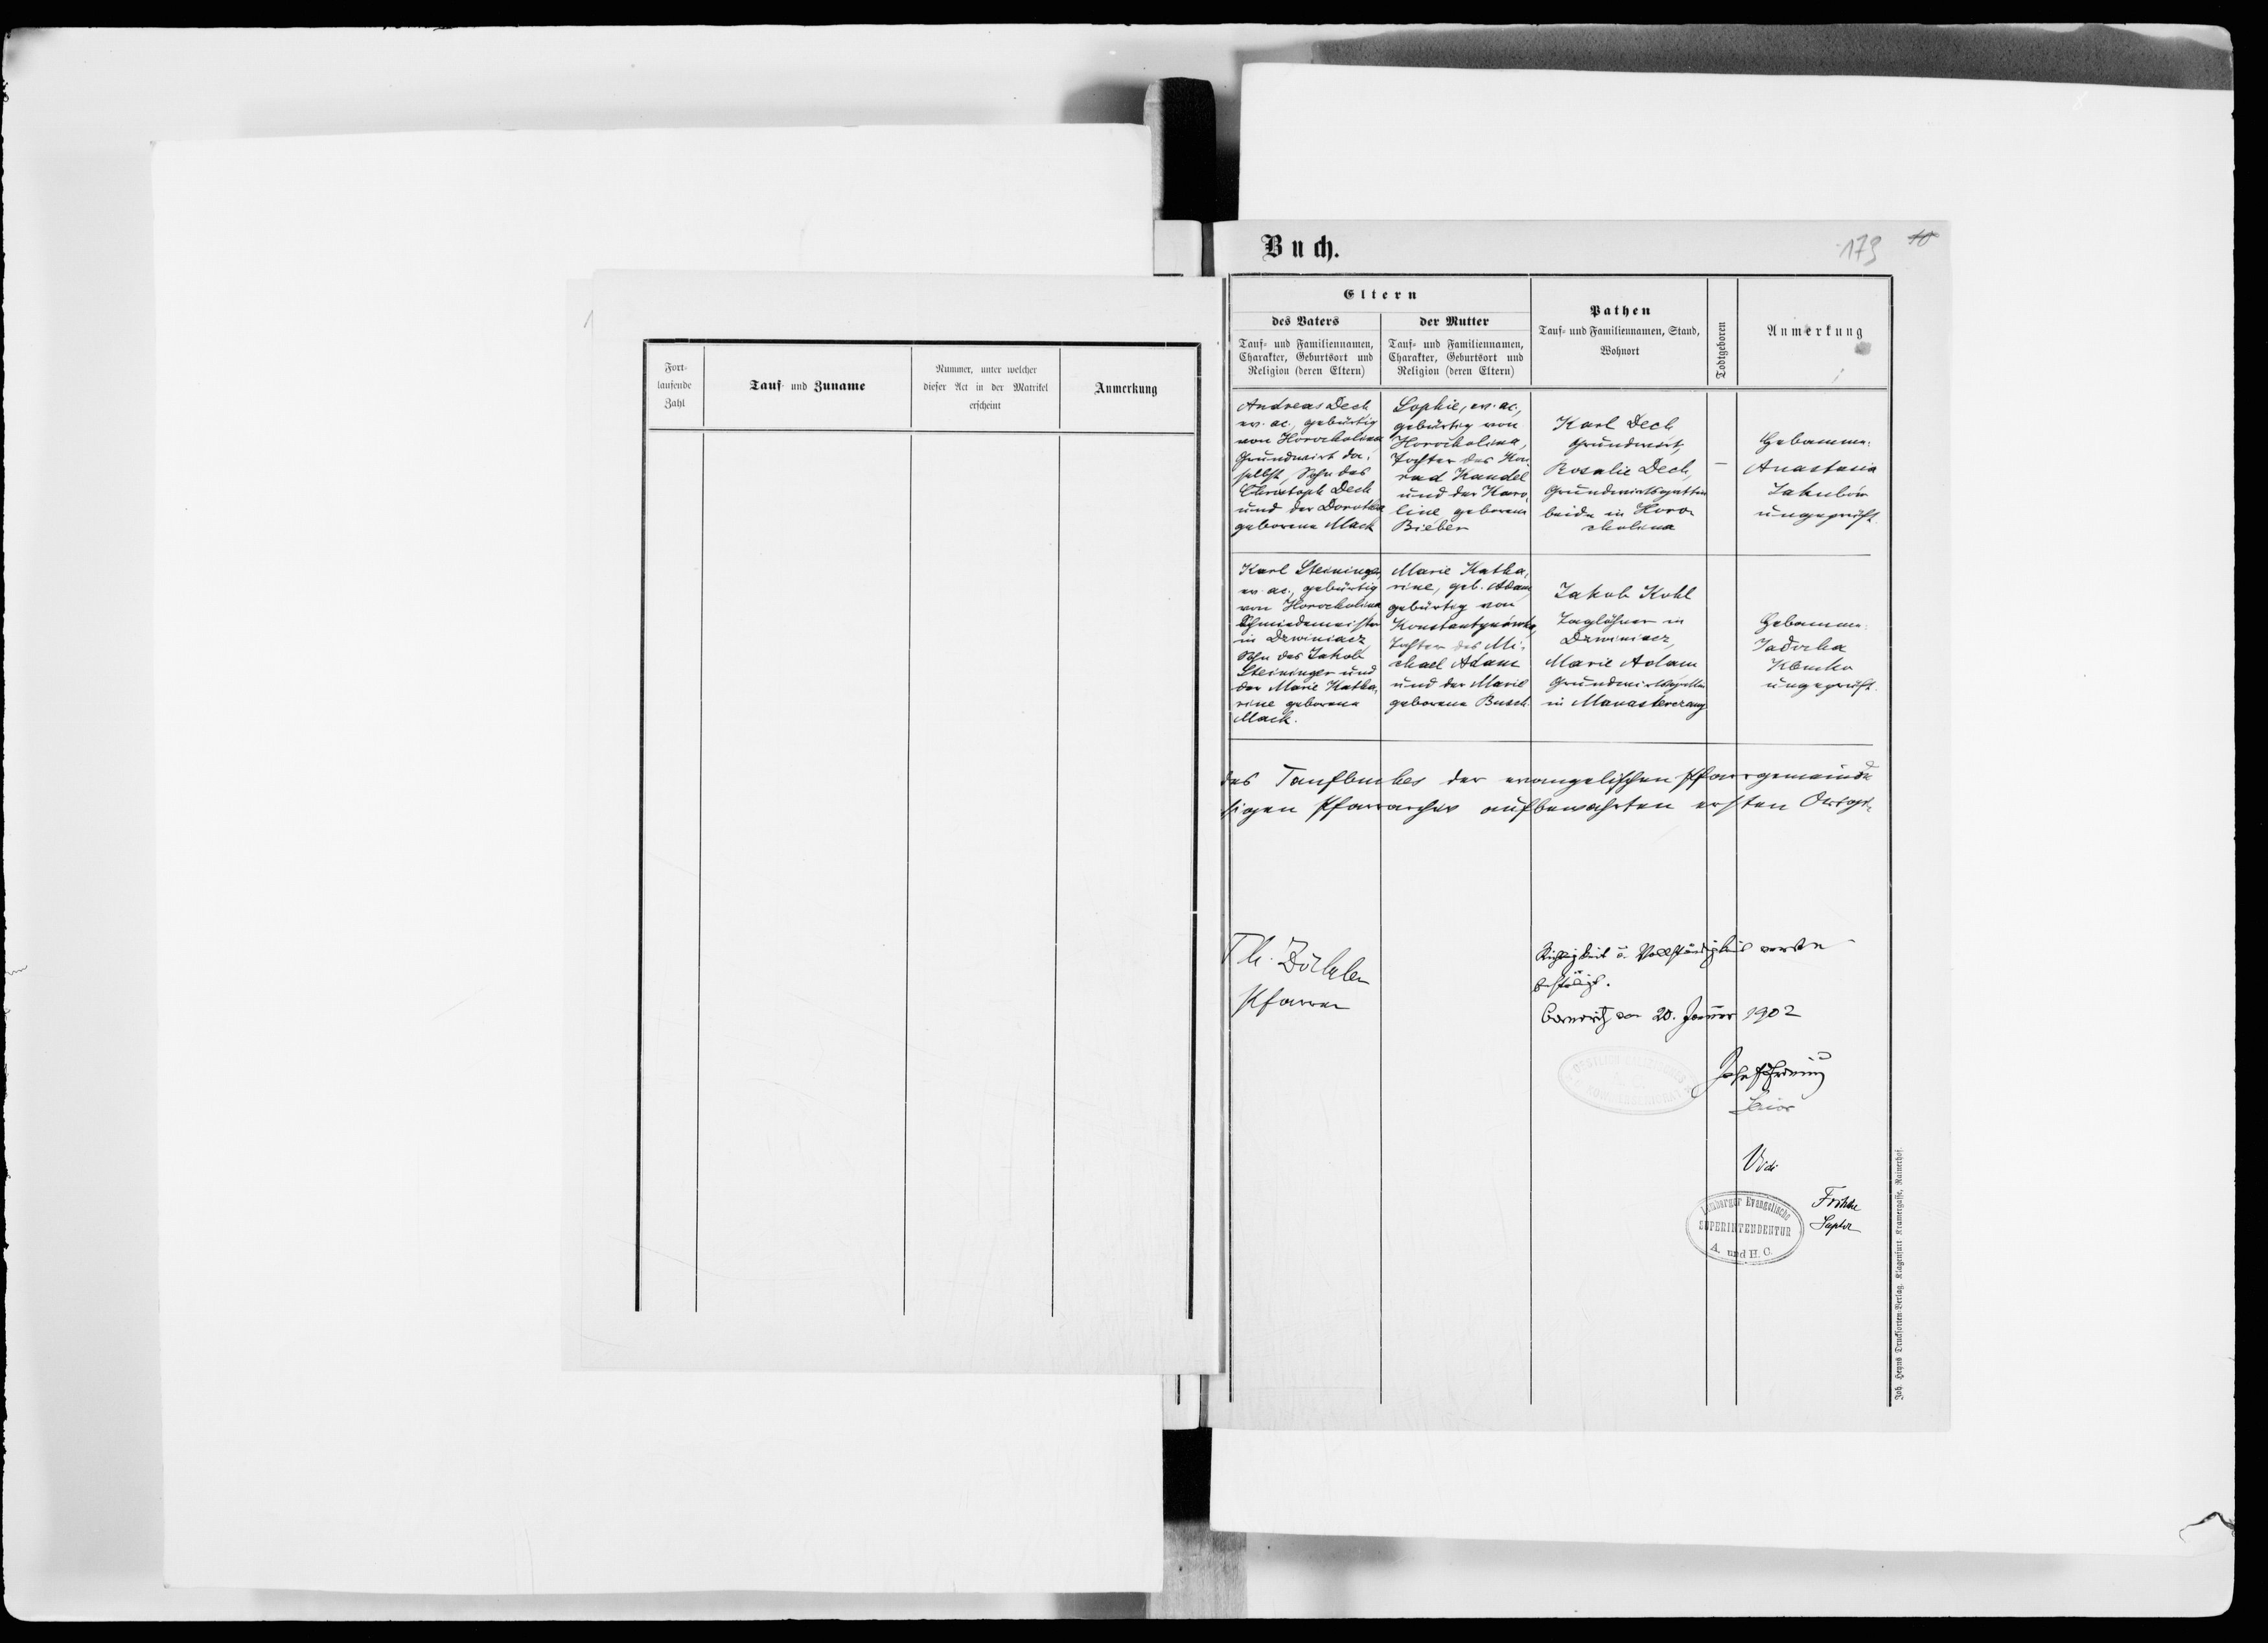 Fort-
laufende
Zahl
Tauf- und Zuname
Nummer, unter welcher
dieser Act in der Matrikel
erscheint
Anmerkung
Buch.
173
10
Eltern
des Vaters
Tauf- und Familiennamen,
Charakter, Geburtsort und
Religion (deren Eltern)
der Mutter
Tauf- und Familiennamen,
Charakter, Geburtsort und
Religion (deren Eltern)
Pathen
Tauf- und Familiennamen, Stand,
Wohnort
Todtgeboren
Anmerkung
Andreas Dech
ev. ac., gebürtig
von Horocholina
Grundwirt da-
selbst, Sohn des
Christoph Dech
und der Dorothea
geborene Mack
Sophie, ev. ac.,
gebürtig von
Horocholina,
Tochter des Kon-
rad Kandel
und der Karo-
line geborene
Bieber
Karl Dech
Grundwirt,
Rosalie Dech,
Grundwirtsgattin
beide in Horo-
cholina
—
Hebamme:
Anastasia
Jakubów
ungeprüft.
Karl Steininger,
ev. ac., gebürtig
von Horocholina
Schmiedemeister
in Dzwiniacz,
Sohn des Jakob
Steininger und
der Marie Katha-
rine geborene
Mack.
Marie Katha-
rine, geb. Adam,
gebürtig von
Konstantynówka,
Tochter des Mi-
chael Adam
und der Marie
geborene Busch.
Jakob Kohl
Taglöhner in
Dzwiniacz,
Marie Adam
in Manasterczany
Hebamme:
ungeprüft.
des Taufbuches der evangelischen Pfarrgemeinde
sigen Pfarrarchiv aufbewahrten ersten
Th.
Pfarrer
Richtigkeit u. Vollständigkeit werden
bestätigt.
20. Januar 1902
Senior
Vidi
Lemberger Evangelische
SUPERINTENDENTUR
A. und H. C.
Joh. Heyns Drucksorten-Verlag, Klagenfurt Kramergasse, Rainerhof.